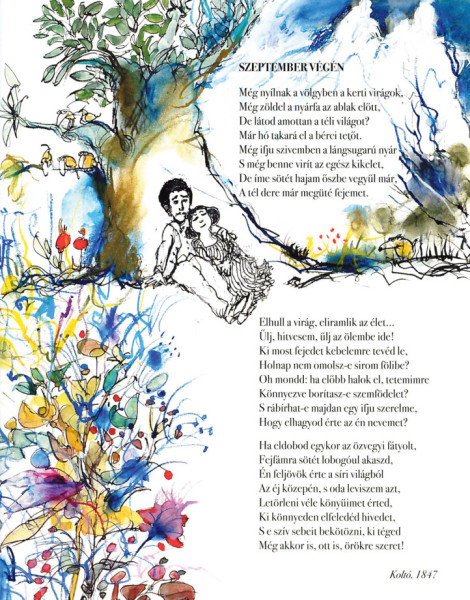 SZEPTEMBER VÉGÉN
Még nyílnak a völgyben a kerti virágok,
Még zöldel a nyárfa az ablak előtt,
De látod amottan a téli világot?
Már hó takará el a bérci tetőt.
Még ifju szivemben a lángsugarú nyár
S még benne virít az egész kikelet,
De íme sötét hajam őszbe vegyül már,
A tél dere már megüté fejemet.
Elhull a virág, eliramlik az élet...
Ülj, hitvesem, ülj az ölembe ide!
Ki most fejedet kebelemre tevéd le,
Holnap nem omolsz-e sirom fölibe?
Oh mondd: ha előbb halok el, tetemimre
Könnyezve borítasz-e szemfödelet?
S rábírhat-e majdan egy ifju szerelme,
Hogy elhagyod érte az én nevemet?
Ha eldobod egykor az özvegyi fátyolt,
Fejfámra sötét lobogóul akaszd,
Én feljövök érte a síri világból
Az éj közepén, s oda leviszem azt,
Letörleni véle könyüimet érted,
Ki könnyeden elfeledéd hivedet,
S e szív sebeit bekötözni, ki téged
Még akkor is, ott is, örökre szeret!
Koltó, 1847